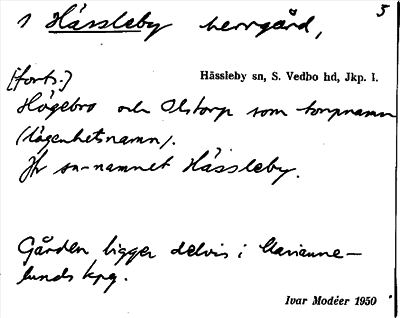 1 Hässleby herrgård, 5
[forts.]
Hässleby sn, S. Vedbo hd, Jkp. l.
Högebro och Ulstorp som torpnamn
(lägenhetsnamn).
Jfr sn-namnet Hässleby.
Gården ligger delvis i Marianne-
lunds kpg.
Ivar Modéer 1950